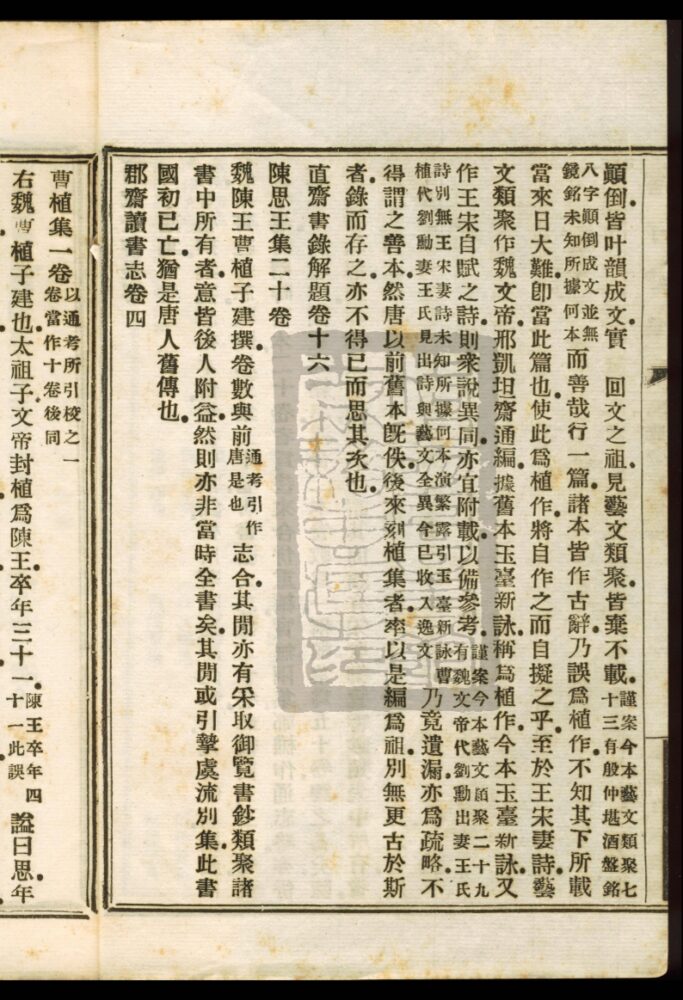 顚倒皆叶韻成文實 回文之祖見藝文類聚皆棄不載謹案今本藝文類聚七十三有殷仲堪酒盤銘
八字顚倒成文並無鏡銘未知所據何本而善哉行一篇諸本皆作古辭乃誤爲植作不知其下所載
當來日大難卽當此篇也使此爲植作將自作之而自擬之乎至於王宋妻詩藝
文類聚作魏文帝邢凱坦齋通編據舊本玉臺新詠稱爲植作今本玉臺新詠又
作王宋自賦之詩則衆說異同亦宜附載以備參考謹案今本藝文類聚二十九有魏文帝代劉勳出妻王氏
詩別無王宋妻詩未知所據何本演繁露引玉臺新詠曹植代劉勳妻王氏見出詩與藝文全異今已收入逸文乃竟遺漏亦爲疏略不
得謂之善本然唐以前舊本旣佚後來刻植集者率以是編爲祖別無更古於斯
者錄而存之亦不得已而思其次也
直齋書錄解題卷十六
陳思王集二十卷
魏陳王曹植子建撰卷數與前通考引作唐是也志合其閒亦有采取御覽書鈔類聚諸
書中所有者意皆後人附益然則亦非當時全書矣其閒或引摯虞流別集此書
國初已亡猶是唐人舊傳也
郡齋讀書志卷四
曹植集一卷以通考所引校之一卷當作十卷後同
右魏曹植子建也太祖子文帝封植爲陳王卒年三十一陳王卒年四十一此誤諡曰思年